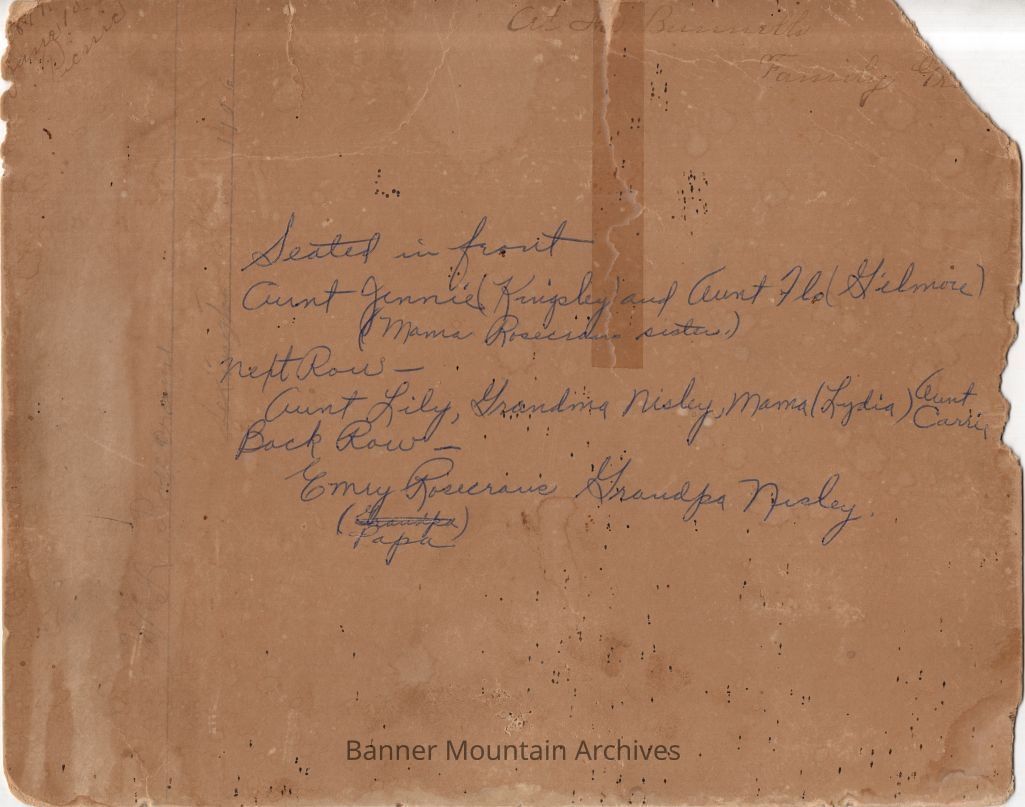 Bunnells
Family
Seated in front
Aunt Jennie (Kingsley) and Aunt Flo (Gilmore)
(Mama Rosecrans sister)
Next Row —
Aunt Lily, Grandma Nisley, Mama (Lydia) Aunt Carrie
Back Row —
Emry Rosecrans Grandpa Nisley.
(Grandpa)
Papa
Banner Mountain Archives